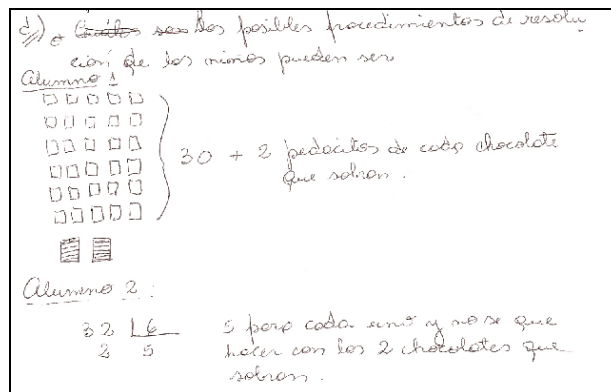 d) Los posibles procedimientos de resolu
ción de los mismos pueden ser
Alumno 1
30 + 2 pedacitos de cada chocolate
que sobran.
Alumno 2:
32 6 5 para cada uno y no se que
2 5 hacer con los 2 chocolates que
sobran.